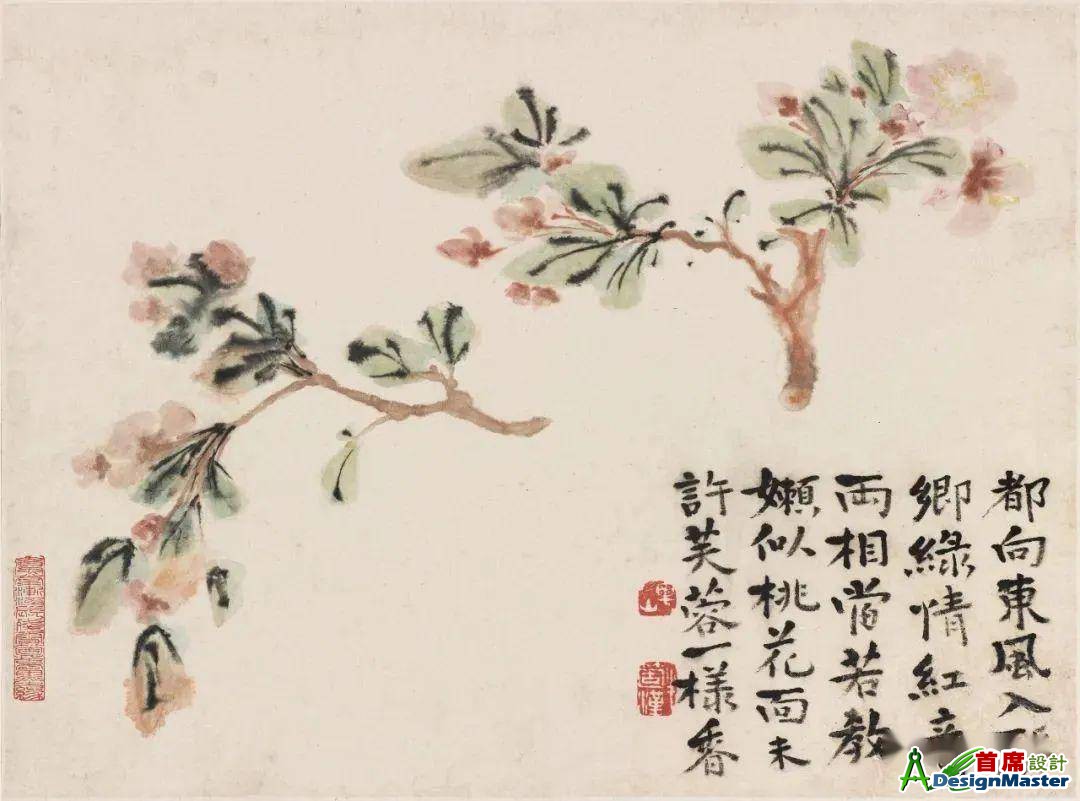 都向東風入
鄉綠情紅
兩相當若教
嬾似桃花面未
許芙蓉一樣香
首席設計
DesignMaster